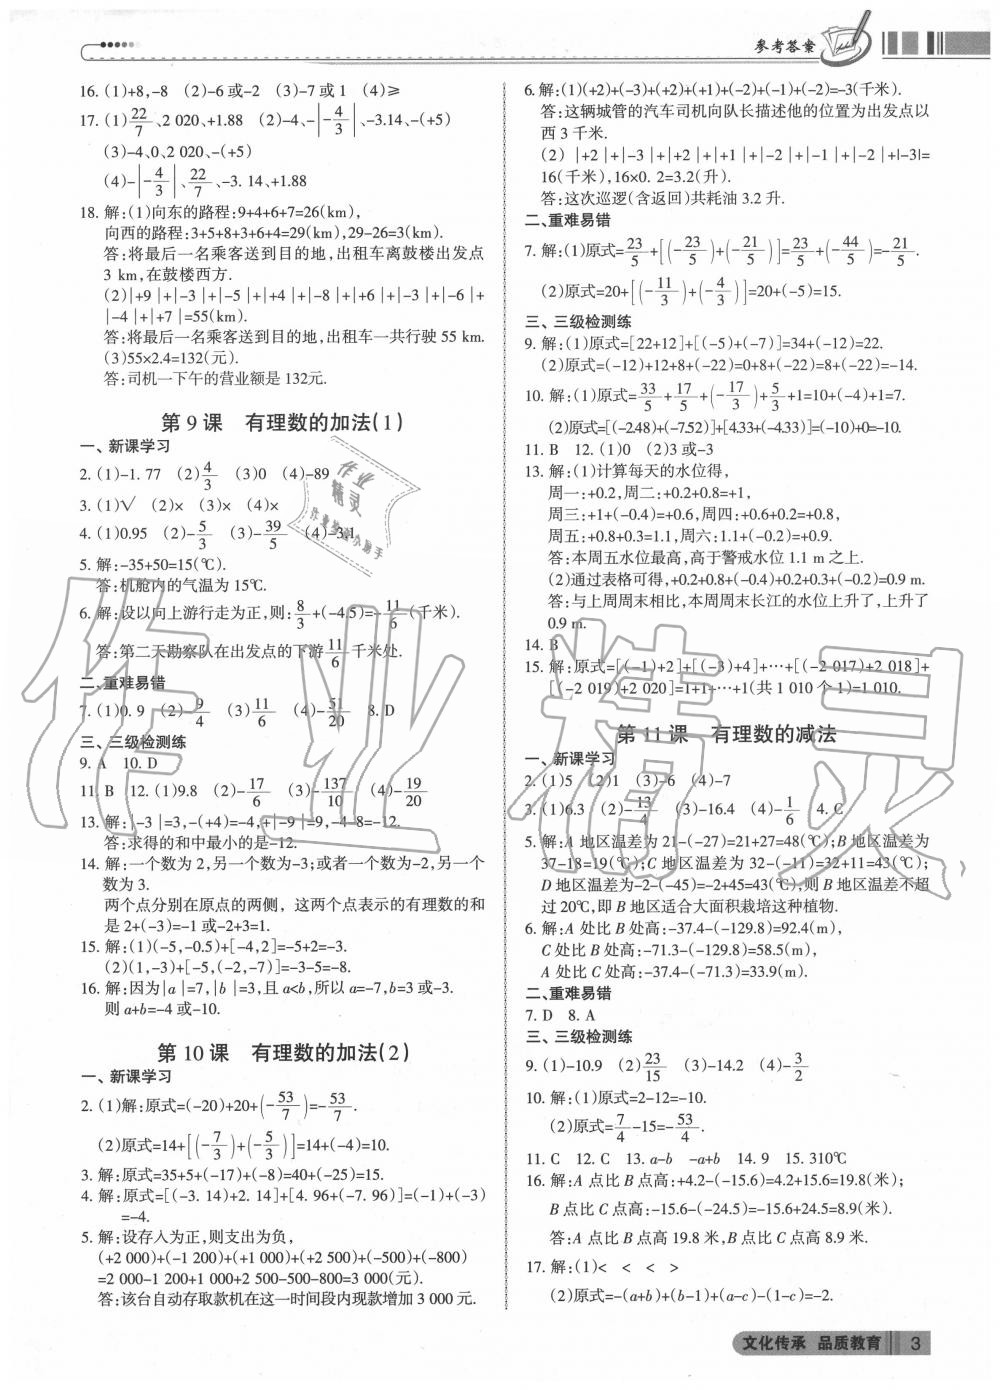 参考答案
16. (1)+8,-8 (2)-6或-2 (3)-7或1 (4)≥
17. (1)22/7、2 020、+1.88 (2)-4、-|-4/3|、-3.14、-(+5)
(3)-4、0、2 020、-(+5)
(4)-|-4/3|、22/7、-3. 14、+1.88
18. 解:(1)向东的路程:9+4+6+7=26(km),
向西的路程:3+5+8+3+6+4=29(km),29-26=3(km).
答:将最后一名乘客送到目的地,出租车离鼓楼出发点
3 km,在鼓楼西方.
(2)|+9 |+|-3 |+|-5 |+|+4 |+|-8 |+|+6 |+|-3 |+|-6 |+
|-4 |+|+7 |=55(km).
答:将最后一名乘客送到目的地,出租车一共行驶 55 km.
(3)55×2.4=132(元).
答:司机一下午的营业额是132元.
第 9 课 有理数的加法(1)
一、新课学习
2. (1)-1. 77 (2)4/3 (3)0 (4)-89
3. (1)√ (2)× (3)× (4)×
4. (1)0.95 (2)-5/3 (3)-39/5 (4)-3.1
5. 解:-35+50=15(℃).
答:机舱内的气温为 15℃.
6. 解:设以向上游行走为正,则:8/3+(-4.5)=-11/6(千米).
答:第二天勘察队在出发点的下游11/6千米处.
二、重难易错
7. (1)0. 9 (2)-9/4 (3)11/6 (4)-51/20 8. D
三、三级检测练
9. A 10. D
11. B 12. (1)9.8 (2)-17/6 (3)-137/10 (4)-19/20
13. 解:|-3 |=3,-(+4)=-4,+|-9 |=9,-4-8=-12.
答:求得的和中最小的是-12.
14. 解:一个数为 2,另一个数为-3;或者一个数为-2,另一个
数为3.
两个点分别在原点的两侧，这两个点表示的有理数的和
是 2+(-3)=-1或-2+3=1.
15. 解:(1)(-5,-0.5)+[-4,2]=-5+2=-3.
(2)(1,-3)+[-5,(-2,-7)]=-3-5=-8.
16. 解:因为|a |=7,|b |=3,且 a<b,所以 a=-7,b=3 或-3.
则 a+b=-4 或-10.
第 10 课 有理数的加法(2)
一、新课学习
2. (1)解:原式=(-20)+20+(-53/7)=-53/7.
(2)原式=14+[(-7/3)+(-5/3)]=14+(-4)=10.
3. 解:原式=35+5+(-17)+(-8)=40+(-25)=15.
4. 解:原式=[(-3. 14)+2. 14]+[4. 96+(-7. 96)]=(-1)+(-3)
=-4.
5. 解:设存入为正,则支出为负,
(+2 000)+(-1 200)+(+1 000)+(+2 500)+(-500)+(-800)
=2 000-1 200+1 000+2 500-500-800=3 000(元).
答:该台自动存取款机在这一时间段内现款增加 3 000 元.
6. 解:(1)(+2)+(-3)+(+2)+(+1)+(-2)+(-1)+(-2)=-3(千米).
答:这辆城管的汽车司机向队长描述他的位置为出发点以
西 3 千米.
(2) |+2 |+|-3 |+|+2 |+|+1 |+|-2 |+|-1 |+|-2 |+|-3|=
16(千米),16×0. 2=3.2(升).
答:这次巡逻(含返回)共耗油 3.2 升.
二、重难易错
7. 解:(1)原式=23/5+[(-23/5)+(-21/5)]=23/5+(-44/5)=-21/5.
(2)原式=20+[(-11/3)+(-4/3)]=20+(-5)=15.
三、三级检测练
9. 解:(1)原式=[22+12]+[(-5)+(-7)]=34+(-12)=22.
(2)原式=(-12)+12+8+(-22)=0+8+(-22)=8+(-22)=-14.
10. 解:(1)原式=33/5+17/5+(-17/3)+5/3+1=10+(-4)+1=7.
(2)原式=[(-2.48)+(-7.52)]+[4.33+(-4.33)]=(-10)+0=-10.
11. B 12. (1)0 (2)3 或-3
13. 解:(1)计算每天的水位得,
周一:+0.2,周二:+0.2+0.8=+1,
周三:+1+(-0.4)=+0.6,周四:+0.6+0.2=+0.8,
周五:+0.8+0.3=1.1,周六:1.1+(-0.2)=+0.9.
答:本周五水位最高,高于警戒水位 1.1 m 之上.
(2)通过表格可得,+0.2+0.8+(-0.4)+0.2+0.3+(-0.2)=0.9 m.
答:与上周周末相比,本周周末长江的水位上升了,上升了
0.9 m.
14. B
15. 解:原式=[(-1)+2]+[(-3)+4]+···+[(-2 017)+2 018]+
[(-2 019)+2 020]=1+1+···+1(共 1 010 个 1)=1 010.
第 11 课 有理数的减法
一、新课学习
2. (1)5 (2)1 (3)-6 (4)-7
3. (1)6.3 (2)-13/4 (3)-16.4 (4)-1/6 4. C
5. 解:A 地区温差为 21-(-27)=21+27=48(℃);B 地区温差为
37-18=19(℃);C 地区温差为 32-(-11)=32+11=43(℃);
D 地区温差为-2-(-45)=-2+45=43(℃),则 B 地区温差不超
过 20℃,即 B 地区适合大面积栽培这种植物.
6. 解:A 处比 B 处高:-37.4-(-129.8)=92.4(m),
C 处比 B 处高:-71.3-(-129.8)=58.5(m),
A 处比 C 处高:-37.4-(-71.3)=33.9(m).
二、重难易错
7. D 8. A
三、三级检测练
9. (1)-10.9 (2)23/15 (3)-14.2 (4)-3/2
10. 解:(1)原式=2-12=-10.
(2)原式=7/4-15=-53/4.
11. C 12. C 13. a-b -a+b 14. 9 15. 310℃
16. 解:A 点比 B 点高:+4.2-(-15.6)=4.2+15.6=19.8(米);
B 点比 C 点高:-15.6-(-24.5)=-15.6+24.5=8.9(米).
答:A 点比 B 点高 19.8 米,B 点比 C 点高 8.9 米.
17. 解:(1)< < < >
(2)原式=-(a+b)+(b-1)+(a-c)-(1-c)=-2.
文化传承 品质教育 3
作业精灵
作业精灵